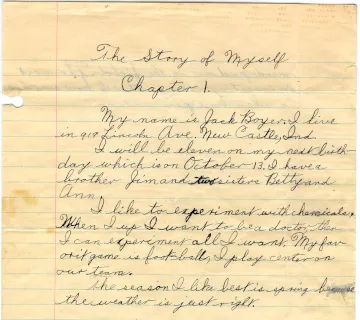 The Story of Myself
Chapter 1.
My name is Jack Boyer. I live
in 919 Lincoln Ave. New Castle, Ind
I will be eleven on my next birth-
day which is on October 13. I have a
brother Jim and two sisters Betty and
Ann.
I like to experiment with chemicals.
When I up I want to be a doctor then
I can experiment all I want. My fav-
orit game is foot-ball. I play center on
our team.
The season I like best is spring because
the weather is just right.